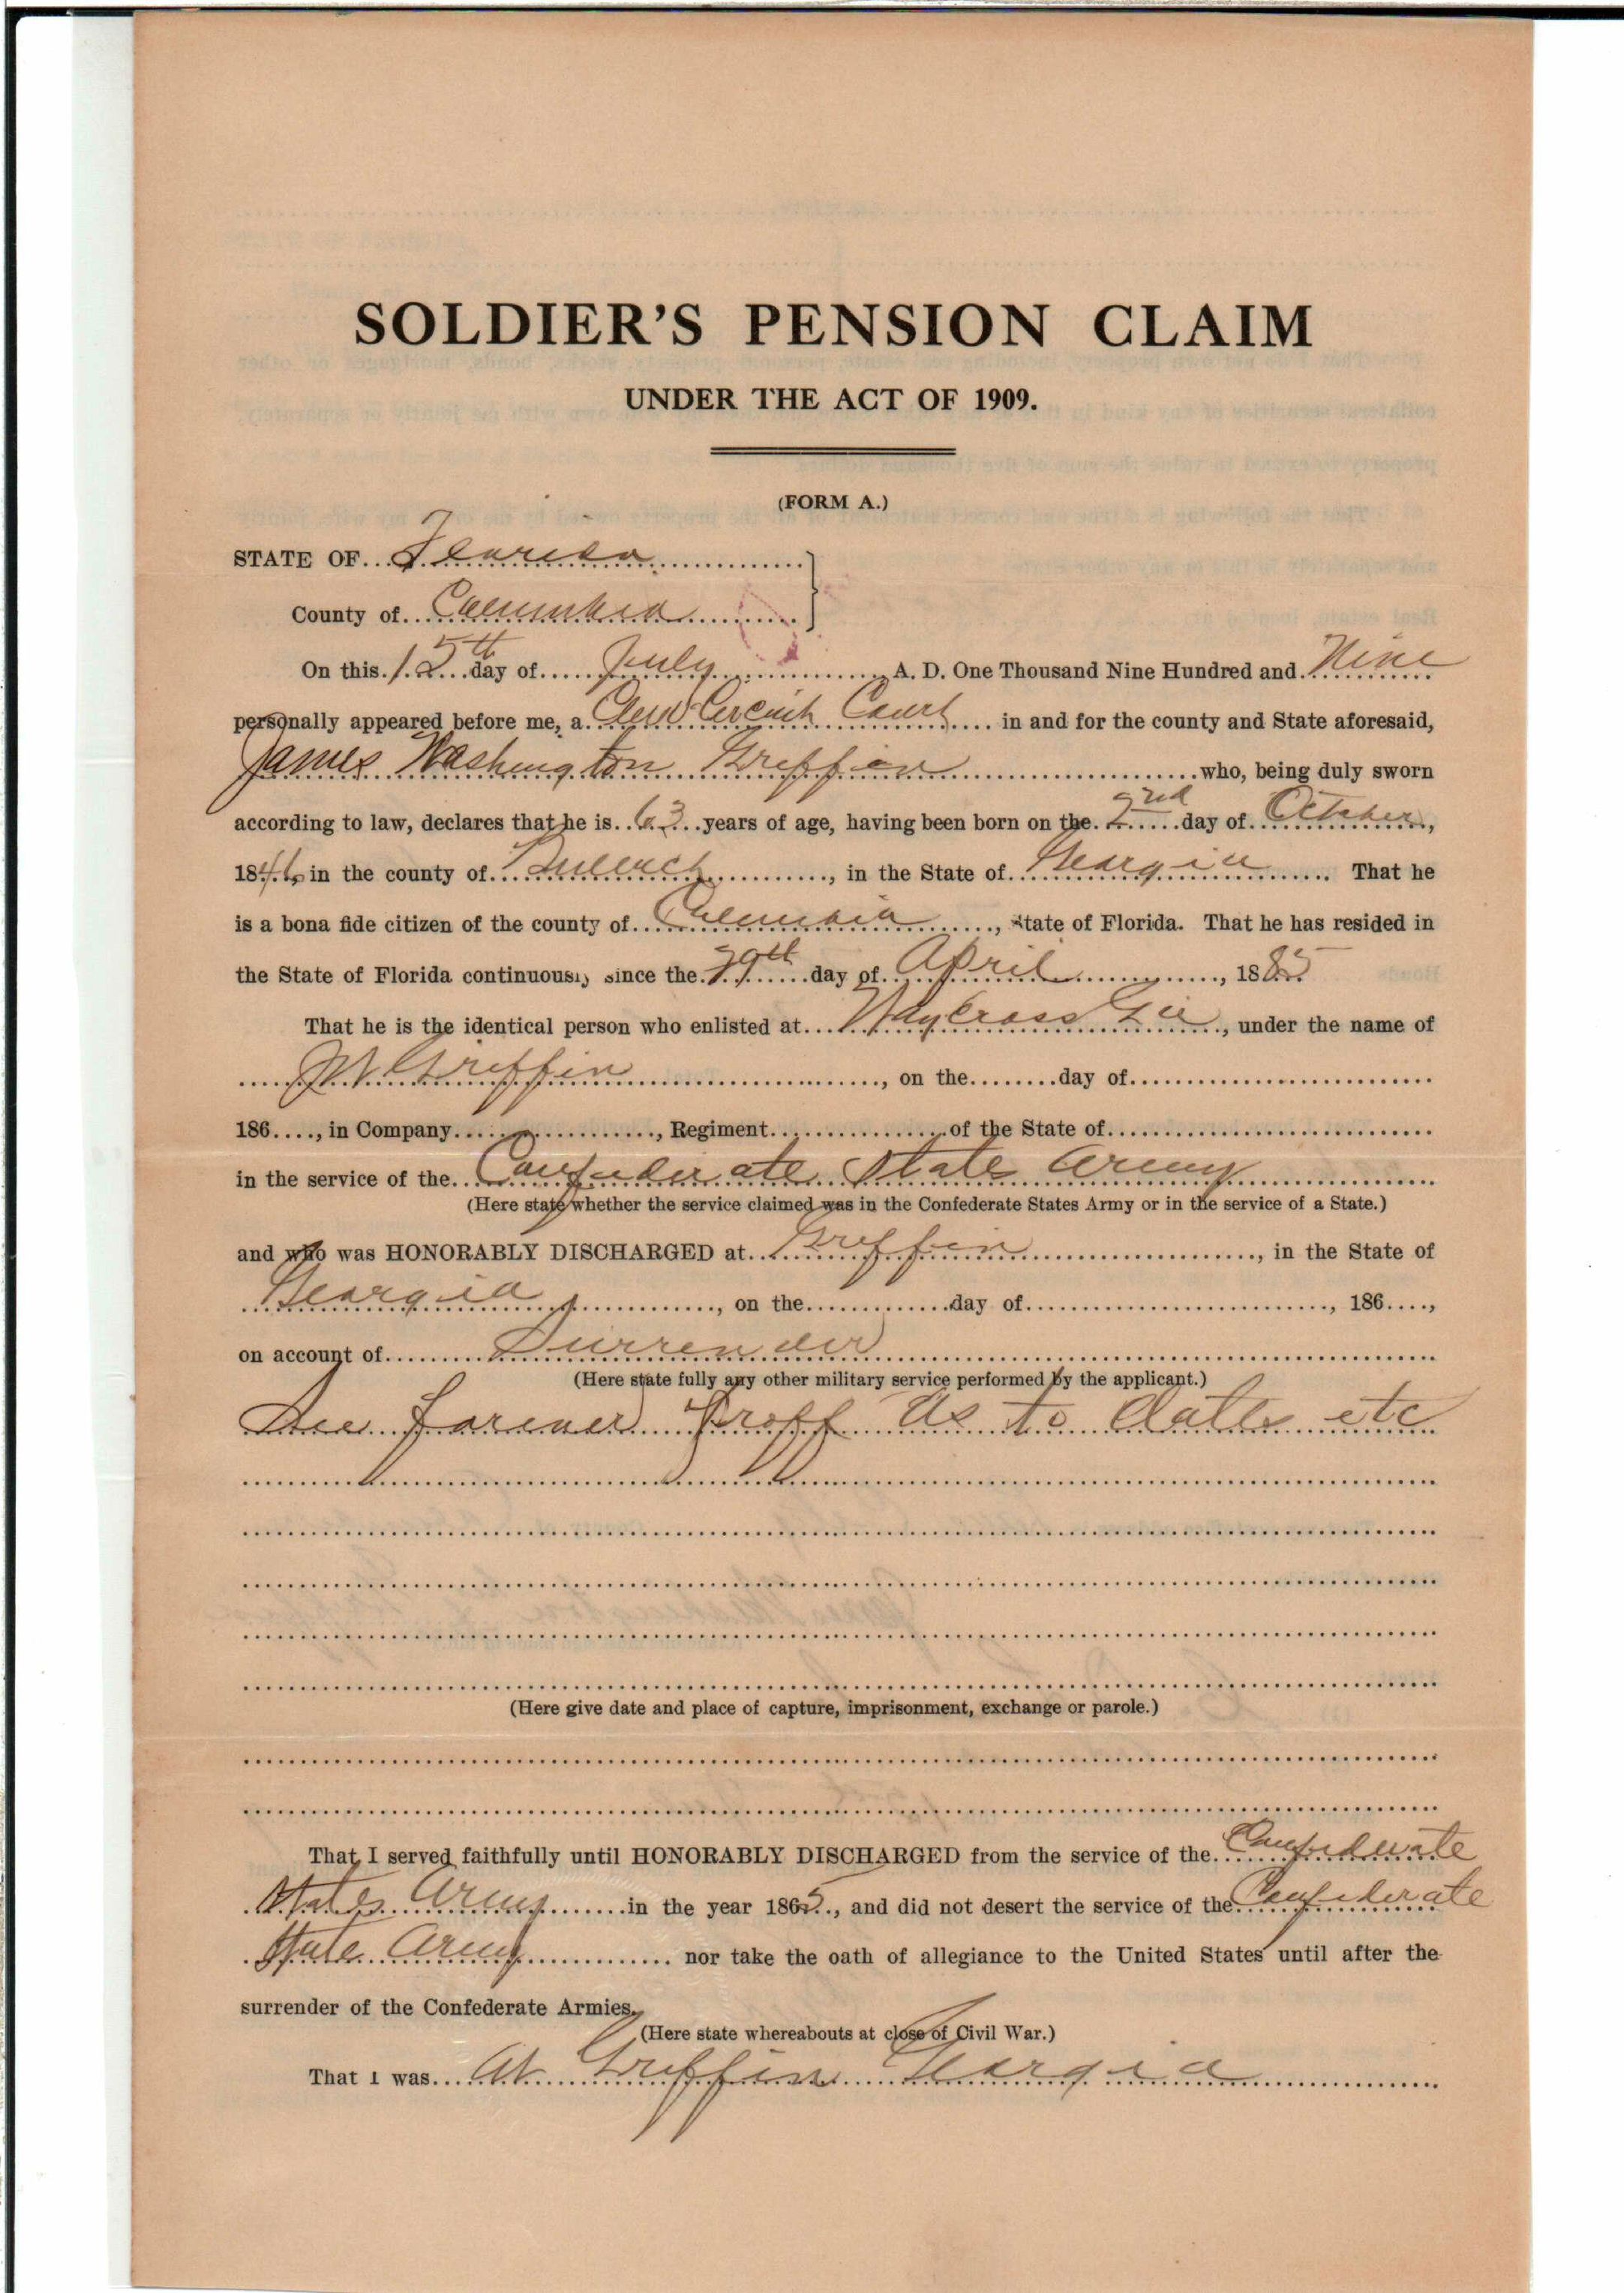 SOLDIER'S PENSION CLAIM
UNDER THE ACT OF 1909.
(FORM A.)
STATE OF Florida
County of Columbia
On this 15th day of July A. D. One Thousand Nine Hundred and Nine
personally appeared before me, a Clerk Circuit Court in and for the county and State aforesaid,
James Washington Griffin who, being duly sworn
according to law, declares that he is 63 years of age, having been born on the 2nd day of October,
1846, in the county of Bulloch, in the State of Georgia That he
is a bona fide citizen of the county of Columbia, State of Florida. That he has resided in
the State of Florida continuously since the 29th day of April, 1885
That he is the identical person who enlisted at WayCross Ga, under the name of
JW Griffin, on the day of
186...., in Company, Regiment of the State of
in the service of the Confederate State Army
(Here state whether the service claimed was in the Confederate States Army or in the service of a State.)
and who was HONORABLY DISCHARGED at Griffin, in the State of
Georgia, on the day of, 186....,
on account of Surrender
(Here state fully any other military service performed by the applicant.)
See former Proff as to Dates etc
(Here give date and place of capture, imprisonment, exchange or parole.)
That I served faithfully until HONORABLY DISCHARGED from the service of the Confederate
States Army in the year 1865, and did not desert the service of the Confederate
State Army nor take the oath of allegiance to the United States until after the
surrender of the Confederate Armies.
(Here state whereabouts at close of Civil War.)
That I was At Griffin Georgia